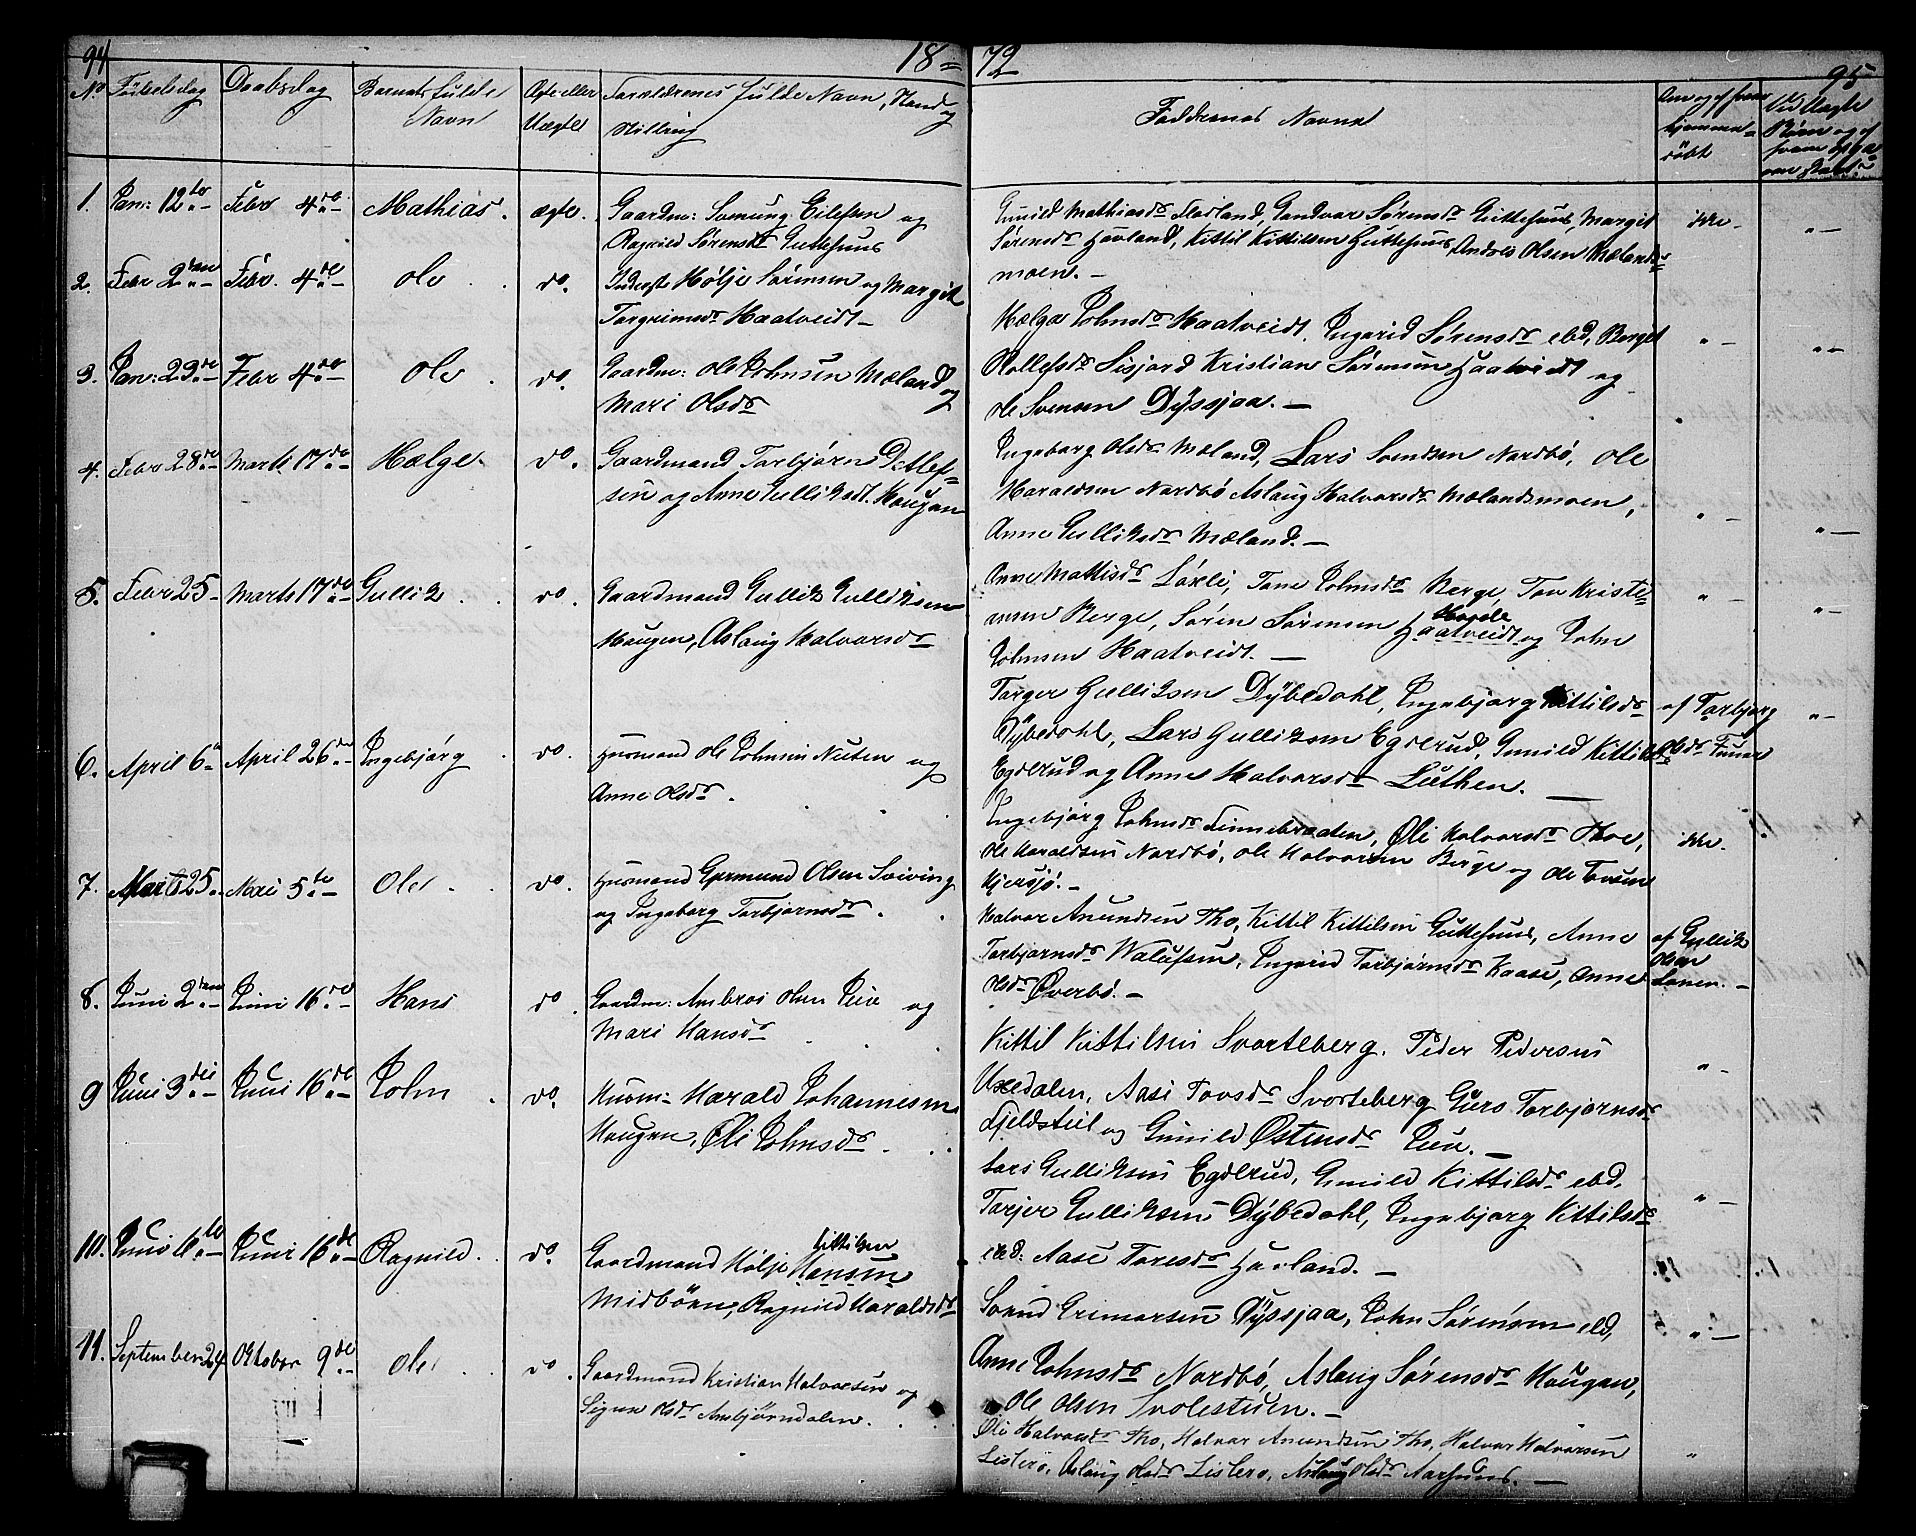 94
18 = 72
95
No
Fødselsdag
Daabsdag
Barnets fulde
Navn
Ægte eller
Uægte
Forældrenes fulde Navn, Stand og
Stilling
Faddrenes Navne
Om og af hvem
hjemme-
døbt
1. Jan: 12te Febr 4de Mathias. ægte. Gaardm: Eilefsen og
Ragnild Sørensdr Guttehuus
Gunild Mathiasdr Flodland, Gundvor Sørensdr Guttehuus, Margit
Sørensdr Havland, Kittil Kittilsen Guttehuus, Anders Olsen Mælands=
moen. —
ikke. „ —
2. Febr 2den Febr. 4de Ole do. Inderst Hølje Sørensen og Margit
Torgrimsdr Haatveidt —
Helga Johnsdr Haatveidt, Ingerid Sørensdr ebd, Berget
Rollefsdr Sisjord Kristian Sørensen Haatveidt og
Ole Svensen Dyssjaa. —
„ — „ —
3. Jan: 23de Febr 4de Ole do. Gaardm: Ole Johnsen Mæland og
Mari Olsdr
Ingeborg Olsdr Mæland, Lars Svendsen Nordbø, Ole
Haraldsen Nordbø Aslaug Halvorsdr Mælandsmoen,
Anne Gulliksdr Mæland. —
„ — „ —
4. Febr 28de Marts 17de Hælge. do. Gaardmand Torbjørn Detlef=
sen og Anne Gulliksdr. Haugan
Anne Mattisdr Løxli, Tone Johnsdr Berge, Tov Kriste=
ensen Berge, Søren Sørensen Haatveidt og John
Johnsen Haatveidt. —
„ — „ —
5. Febr 25 — Marts 17de Gullik do. Gaardmand Gullik Gulliksen
Haugen, Aslaug Halvorsdr
Torger Gulliksen Dybedahl, Ingebjørg Kittilsdr
Dybedahl, Lars Gulliksen Egderud, Gunild Kittilsdr
Egderud og Anne Halvorsdr Luthen. —
af Torbjørg
Olsdr
„ —
6. April 6te April 26de Ingebjørg do. Husmand Ole Johnsen Nuten og
Anne Olsdr.
Ingebjørg Johnsdr Finnebraaten, Øli Halvorsdr Thoe,
Ole Haraldsen Nordbø, Ole Halvorsen Berge og Ole Tovsen
Kjersjø. —
ikke.
7. Marts 25. Mai 5te Ole do. Husmand Germund Olsen Sviving
og Ingeborg Torbjørnsdr.
Halvor Anundsen Tho, Kittil Kittilsen Guttehuus, Anne
Torbjørnsdr Ingerid Torbjørnsdr Kaase, Anne
Olsdr Øverbø. —
af Gullik
Olsen
8. Juni 2den Juni 16de Hans do. Gaardm: Ambros Olsen Juv og
Mari Hansdr
Kittil Kittilsen Svorteberg. Peder Pedersen
Uxedalen, Aase Tovsdr Svorteberg Guro Torbjørnsdr
Fjeldstul og Gunild Østensdr Juv. —
„ —
9 Juni 3die Juni 16de John do. Husm: Harald Johannesen
Haugen, Øli Johnsdr.
Lars Gulliksen Egderud, Gunild Kittilsdr ebd,
Torjer Gulliksen Dybedahl, Ingebjørg Kittilsdr
ebd. Aase Toresdr Havland. —
„ —
10. Juni 6te Juni 16de Ragnild. do. Gaardmand Hølje Hansen Kittilsen
Midbøen, Ragnild Haraldsdr
Svend Grimorsen Dyssjaa, John Sørensen ebd,
Anne Johnsdr Nordbø, Aslaug Sørensdr Haugan,
Ole Olsen Svolestuen. —
„ —
11. September 24 Oktober 9de Ole do. Gaardmand Kristian Halvorsen og
Signe Olsdr Asbjørndalen.
Øli Halvorsdr Tho, Halvor Anundsen Tho, Halvor Halvorsen
Listerø, Aslaug Olsdr Listerø, Aslaug Olsdr Aarhuus. —
„